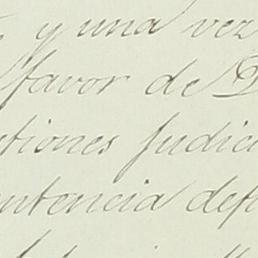 y una vez
favor de D
tiones judici
ntencia def